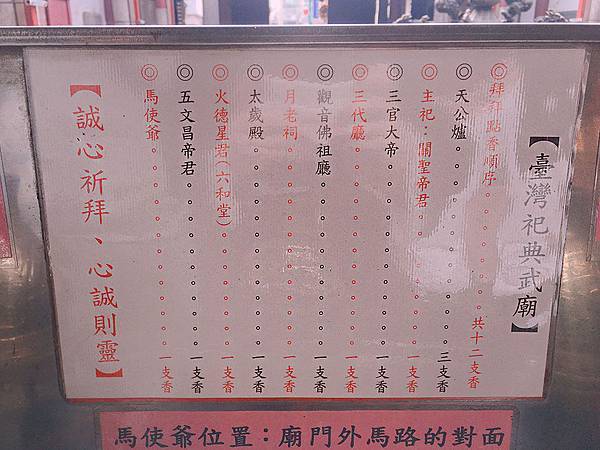 【臺灣祀典武廟】
◎拜拜點香順序。。。。。。。。共十二支香
◎天公爐。。。。。。。。。。。。三支香
◎主祀：關聖帝君。。。。。。。。一支香
◎三官大帝。。。。。。。。。。。一支香
◎三代廳。。。。。。。。。。。。一支香
◎觀音佛祖廳。。。。。。。。。。一支香
◎月老祠。。。。。。。。。。。。一支香
◎太歲殿。。。。。。。。。。。。一支香
◎火德星君（六和堂）。。。。。。一支香
◎五文昌帝君。。。。。。。。。。一支香
◎馬使爺。。。。。。。。。。。。一支香
【誠心祈拜、心誠則靈】
馬使爺位置：廟門外馬路的對面